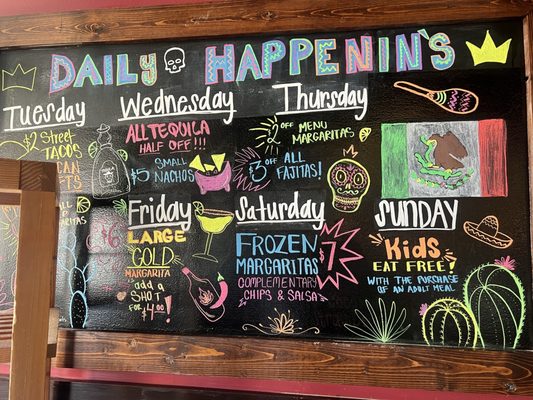 DAiLY HAPPENIN'S
Tuesday
$2 Street
TACOS
Wednesday
ALL TEQUILA
HALF OFF!!!
$5 SMALL
NACHOS
Thursday
$2 OFF MENU
MARGARITAS
$3 OFF ALL
FAJITAS!
Friday
LARGE
GOLD
MARGARITA
add a
SHOT
FOR $4.00
Saturday
FROZEN $7
MARGARITAS
COMPLEMENTARY
CHIPS & SALSA
SUNDAY
Kids
EAT FREE!
WITH THE PURCHASE
OF AN ADULT MEAL